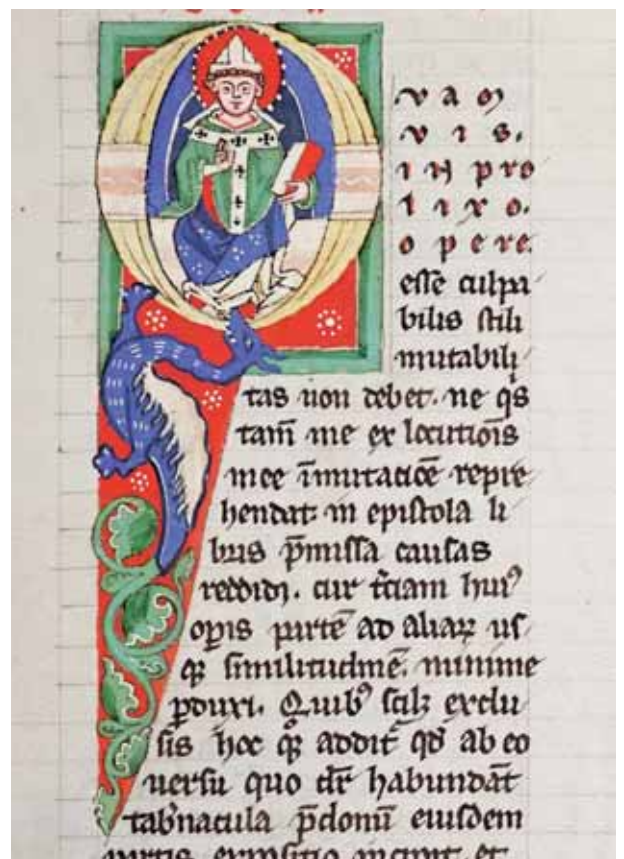 Q vam
vis.
in pro
lixo.
opere
esse culpa
bilis stili
mutabili
tas non debet. ne q̇s
tam̄ me ex locutiōis
mee īmutatiōe repre
hendat in epistola li
bris p̄missa causas
reddidi. cur t̄ciam huiꝰ
oꝑis parte᷒ ad aliaꝝ us
qꝫ similitudinē. minime
ꝑduxi. Quibꝰ scilꝫ exclu
sis hoc qͦꝫ addit᷒ qd̄ ab eo
versu quo dr̄ habundāt
tab̓nacula p̄donū eiusdem
partis expositio incipit et